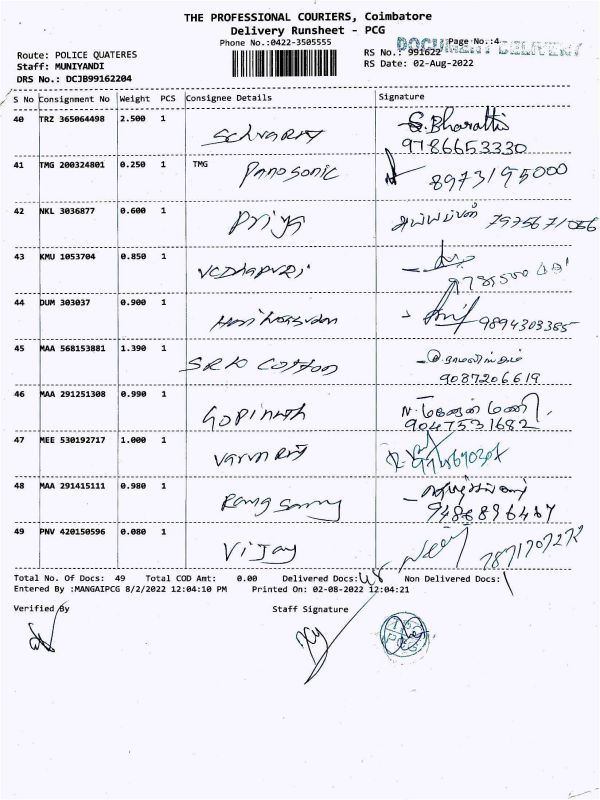 THE PROFESSIONAL COURIERS, Coimbatore
Delivery Runsheet - PCG
Phone No.:0422-3505555
Page No.:4
DOCUMENT DELIVERY
Route: POLICE QUATERES
RS No.: 991622
Staff: MUNIYANDI
RS Date: 02-Aug-2022
DRS No.: DCJB99162204
S No Consignment No Weight PCS Consignee Details Signature
40 TRZ 365064498 2.500 1 S. Bharathi
9786653330
41 TMG 200324801 0.250 1 TMG Panasonic 8973195000
42 NKL 3036877 0.600 1 Priya அய்யப்பன் 7975671056
43 KMU 1053704 0.850 1
44 DUM 303037 0.900 1 9894303385
45 MAA 568153881 1.390 1 SRK Cotton
9087206619
46 MAA 291251308 0.990 1 Gopinath
9047531682
47 MEE 530192717 1.000 1
48 MAA 291415111 0.980 1 Ramg Samy
9486896487
49 PNV 420150596 0.080 1 Vijay 7871707272
Total No. Of Docs: 49 Total COD Amt: 0.00 Delivered Docs: 48 Non Delivered Docs: 1
Entered By :MANGAIPCG 8/2/2022 12:04:10 PM Printed On: 02-08-2022 12:04:21
Verified By Staff Signature